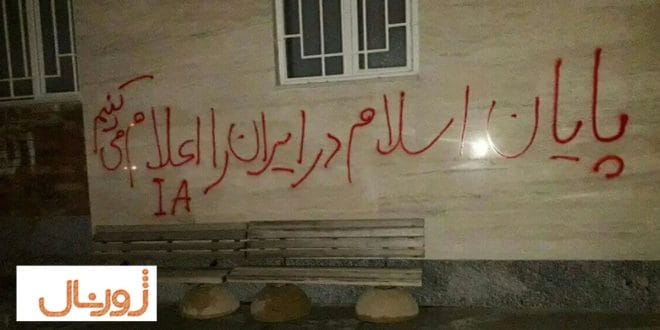 پایان اسلام در ایران را اعلام می کنیم
IA
ژورنال